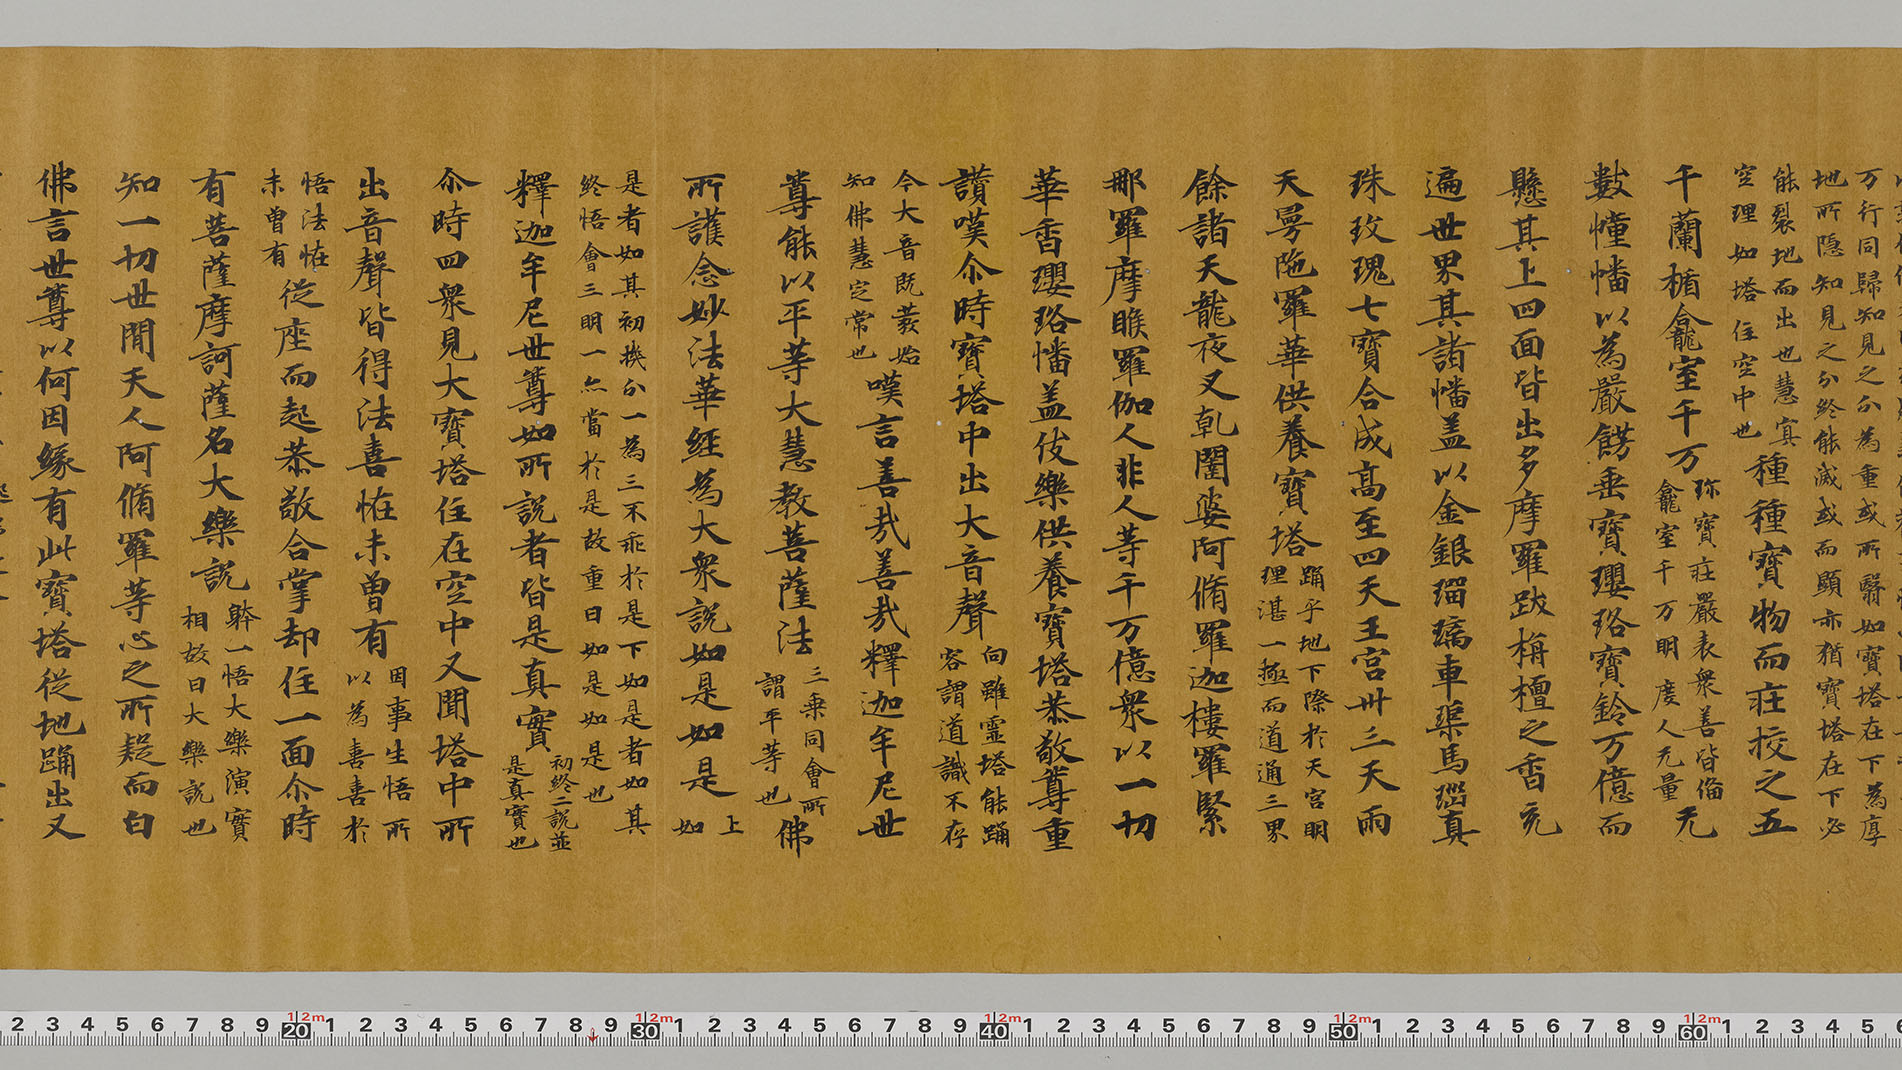 万行同歸知見之分為重或所翳如寶塔在下為厚
地所隱知見之分終能滅或而顯亦猶寶塔在下必
能裂地而出也慧寘
空理如塔住空中也
種種寶物而莊挍之五
千蘭楯龕室千万
珎寶莊嚴表衆善皆俻
龕室千万明度人无量
无
數幢幡以為嚴餝垂寶瓔珞寶鈴万億而
懸其上四面皆出多摩羅跋栴檀之香充
遍世界其諸幡盖以金銀瑠璃車𤦲馬瑙真
珠玫瑰七寶合成高至四天王宮卅三天雨
天曼陁羅華供養寶塔
踊乎地下際於天宮明
理湛一極而道通三界
餘諸天龍夜叉乹闥婆阿脩羅迦樓羅緊
那羅摩睺羅伽人非人等千万億衆以一切
華香瓔珞幡盖伎樂供養寶塔恭敬尊重
讃嘆尒時寶塔中出大音聲
向雖靈塔能踊
容謂道識不存
今大音既𤼲始
知佛慧定常也
嘆言善㢤善㢤釋迦牟尼世
尊能以平等大慧教菩薩法
三乗同會所
謂平等也
佛
所護念妙法華經為大衆說如是如是
上
如
是者如其初機分一為三不乖於是下如是者如其
終悟會三明一亦當於是故重曰如是如是也
釋迦牟尼世尊如所說者皆是真實
初終二說並
是真實也
尒時四衆見大寶塔住在空中又聞塔中所
出音聲皆得法喜恠未曾有
因事生悟所
以為喜喜於
悟法恠
未曾有
從座而起恭敬合掌却住一面尒時
有菩薩摩訶薩名大樂說
躰一悟大樂演實
相故曰大樂說也
知一切世閒天人阿脩羅等心之所疑而白
佛言世尊以何因緣有此寶塔從地踊出又